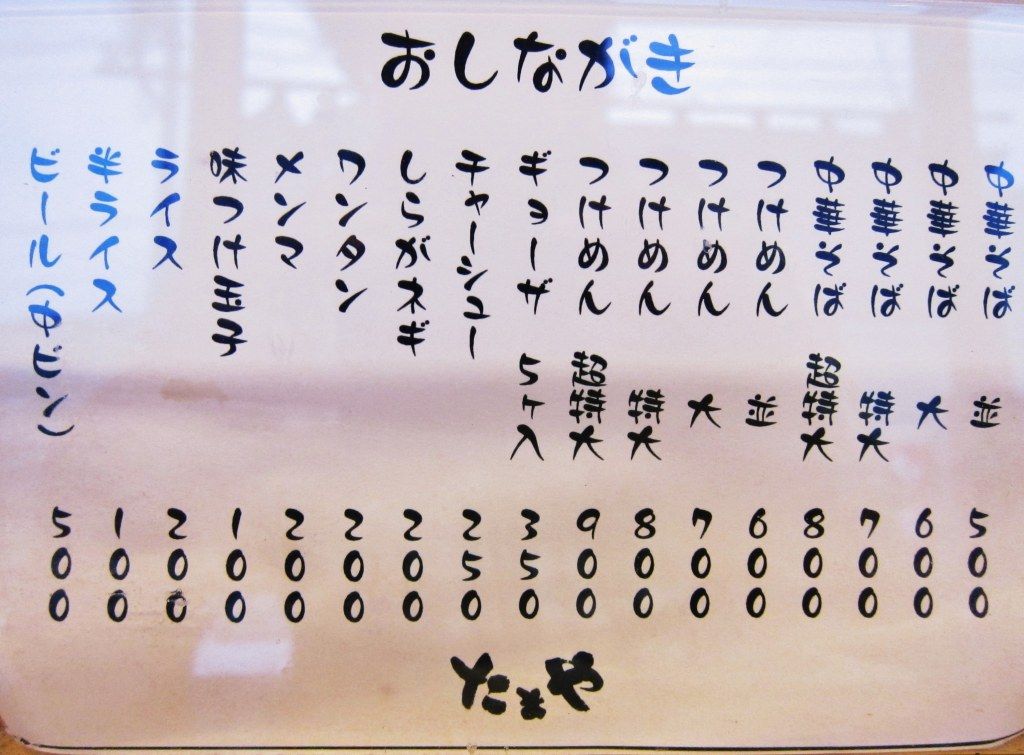 おしながき
中華そば 並 500
中華そば 大 600
中華そば 特大 700
中華そば 超特大 800
つけめん 並 600
つけめん 大 700
つけめん 特大 800
つけめん 超特大 900
ギョーザ 5ヶ入 350
チャーシュー 250
しらがネギ 200
ワンタン 200
メンマ 200
味つけ玉子 100
ライス 200
半ライス 100
ビール(中ビン) 500
たまや